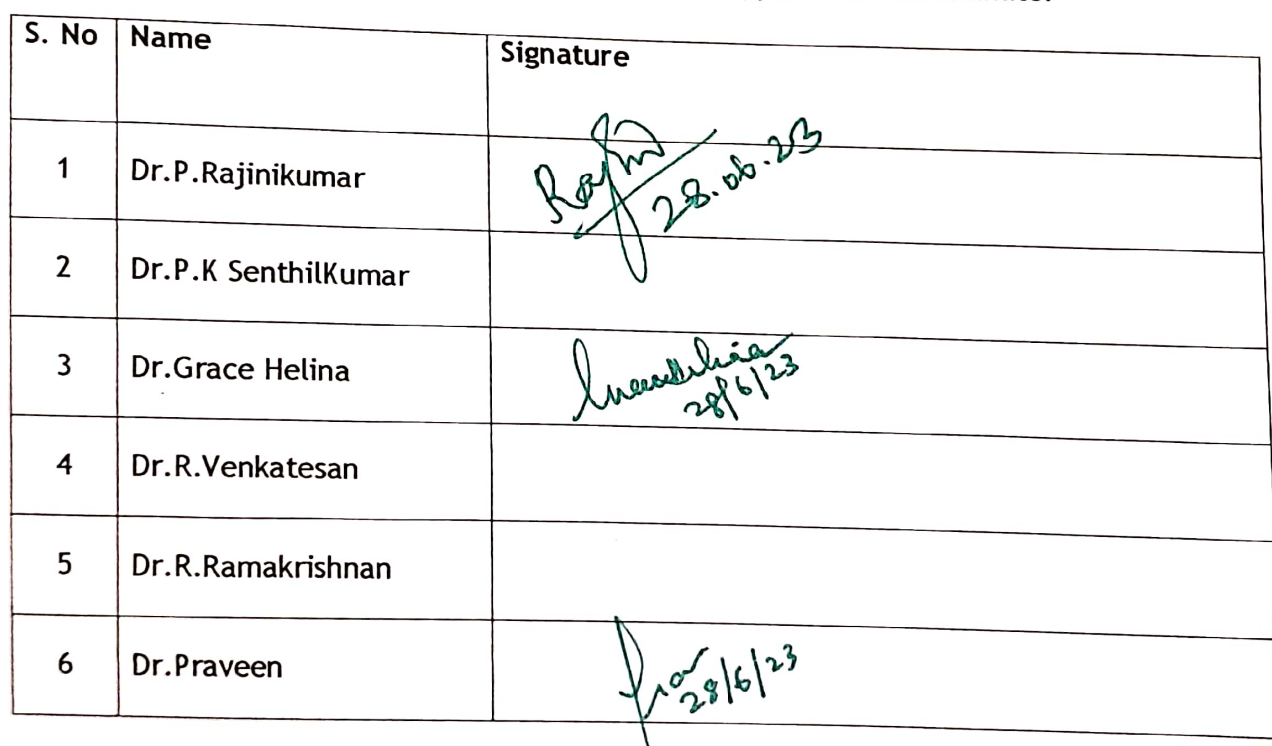 S. No Name Signature
1 Dr.P.Rajinikumar
28.06.23
2 Dr.P.K SenthilKumar
3 Dr.Grace Helina
28/6/23
4 Dr.R.Venkatesan
5 Dr.R.Ramakrishnan
6 Dr.Praveen
28/6/23